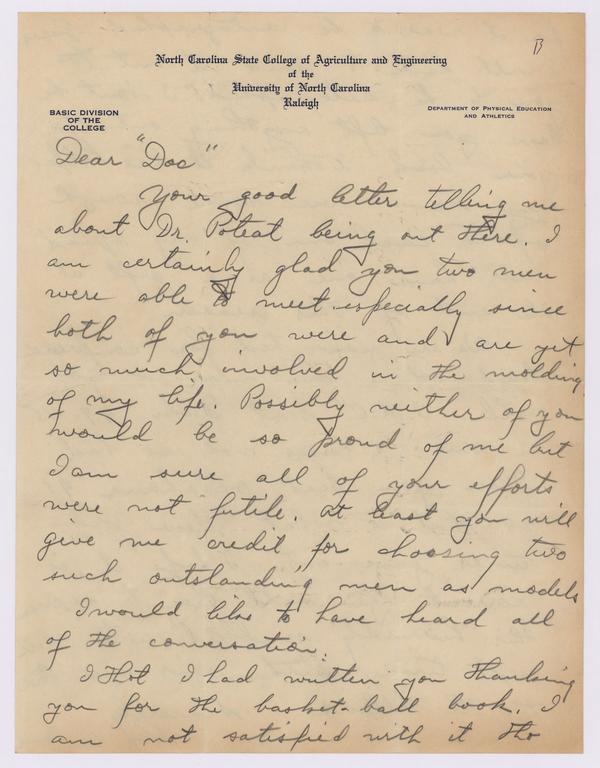 B
North Carolina State College of Agriculture and Engineering
of the
University of North Carolina
Raleigh
BASIC DIVISION
OF THE
COLLEGE
DEPARTMENT OF PHYSICAL EDUCATION
AND ATHLETICS
Dear "Doc"
Your good letter telling me
about Dr. Poteat being out there. I
am certainly glad you two men
were able to meet especially since
both of you were and are yet
so much involved in the molding
of my life. Possibly neither of you
would be so proud of me but
I am sure all of your efforts
were not futile. At least you will
give me credit for choosing two
such outstanding men as models
I would like to have heard all
of the conversation.
I thot I had written you thanking
you for the basket-ball book. I
am not satisfied with it tho